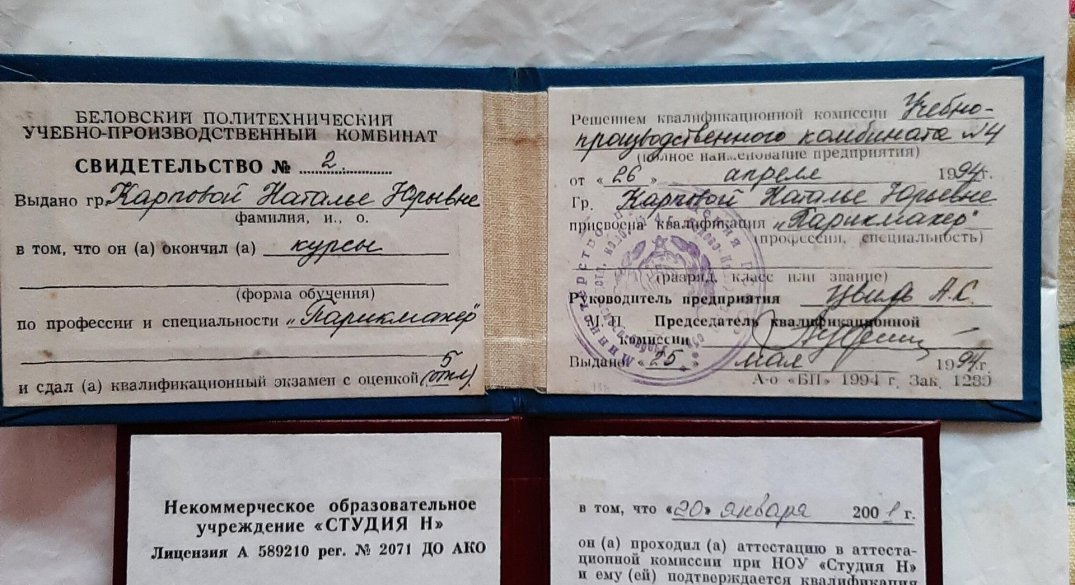 БЕЛОВСКИЙ ПОЛИТЕХНИЧЕСКИЙ
УЧЕБНО-ПРОИЗВОДСТВЕННЫЙ КОМБИНАТ
СВИДЕТЕЛЬСТВО № 2.
Выдано гр. Карповой Наталье Юрьевне
фамилия, и., о.
в том, что он (а) окончил (а) курсы
(форма обучения)
по профессии и специальности „Парикмахер"
и сдал (а) квалификационный экзамен с оценкой 5 (отл)
Решением квалификационной комиссии Учебно-
производственного комбината №4
(полное наименование предприятия)
от «26» апреля 1994г.
Гр. Карповой Наталье Юрьевне
присвоена квалификация „Парикмахер"
(профессия, специальность)
(разряд, класс или звание)
Руководитель предприятия А.С.
М. П. Председатель квалификационной
комиссии
Выдано «25» мая 1994г.
А-о «БП» 1994 г. Зак. 1239
Некоммерческое образовательное
учреждение «СТУДИЯ Н»
Лицензия А 589210 рег. № 2071 ДО АКО
в том, что «20» января 2001 г.
он (а) проходил (а) аттестацию в аттеста-
ционной комиссии при НОУ «Студия Н»
и ему (ей) подтверждается квалификация